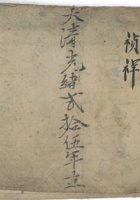 禎祥
大清光緒弍拾伍年立